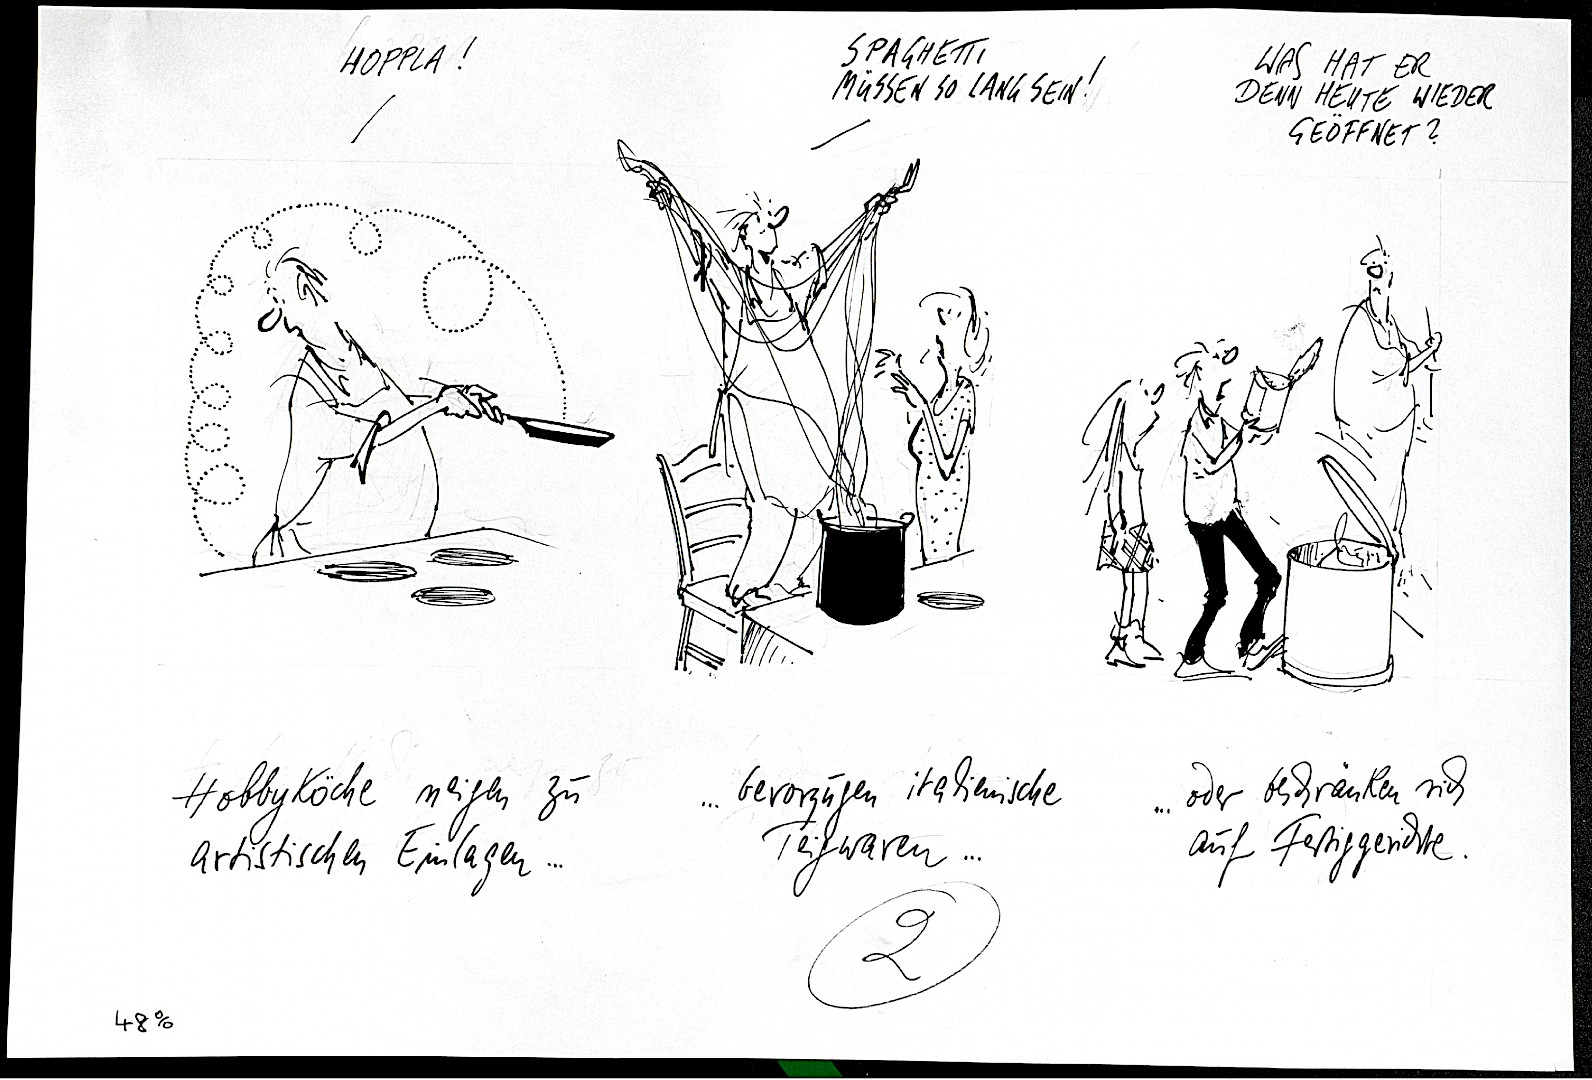 HOPPLA!
SPAGHETTI
MÜSSEN SO LANG SEIN!
WAS HAT ER
DENN HEUTE WIEDER
GEÖFFNET?
Hobbyköche neigen zu
artistischen Einlagen ...
... bevorzugen italienische
Teigwaren ...
... oder beschränken sich
auf Fertiggerichte.
2
48%